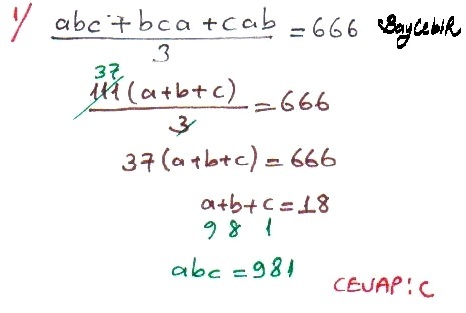 1/ abc + bca + cab / 3 = 666 BayCebiR
37
111 (a+b+c) / 3 = 666
37 (a+b+c) = 666
a+b+c = 18
9 8 1
abc = 981
CEVAP: C